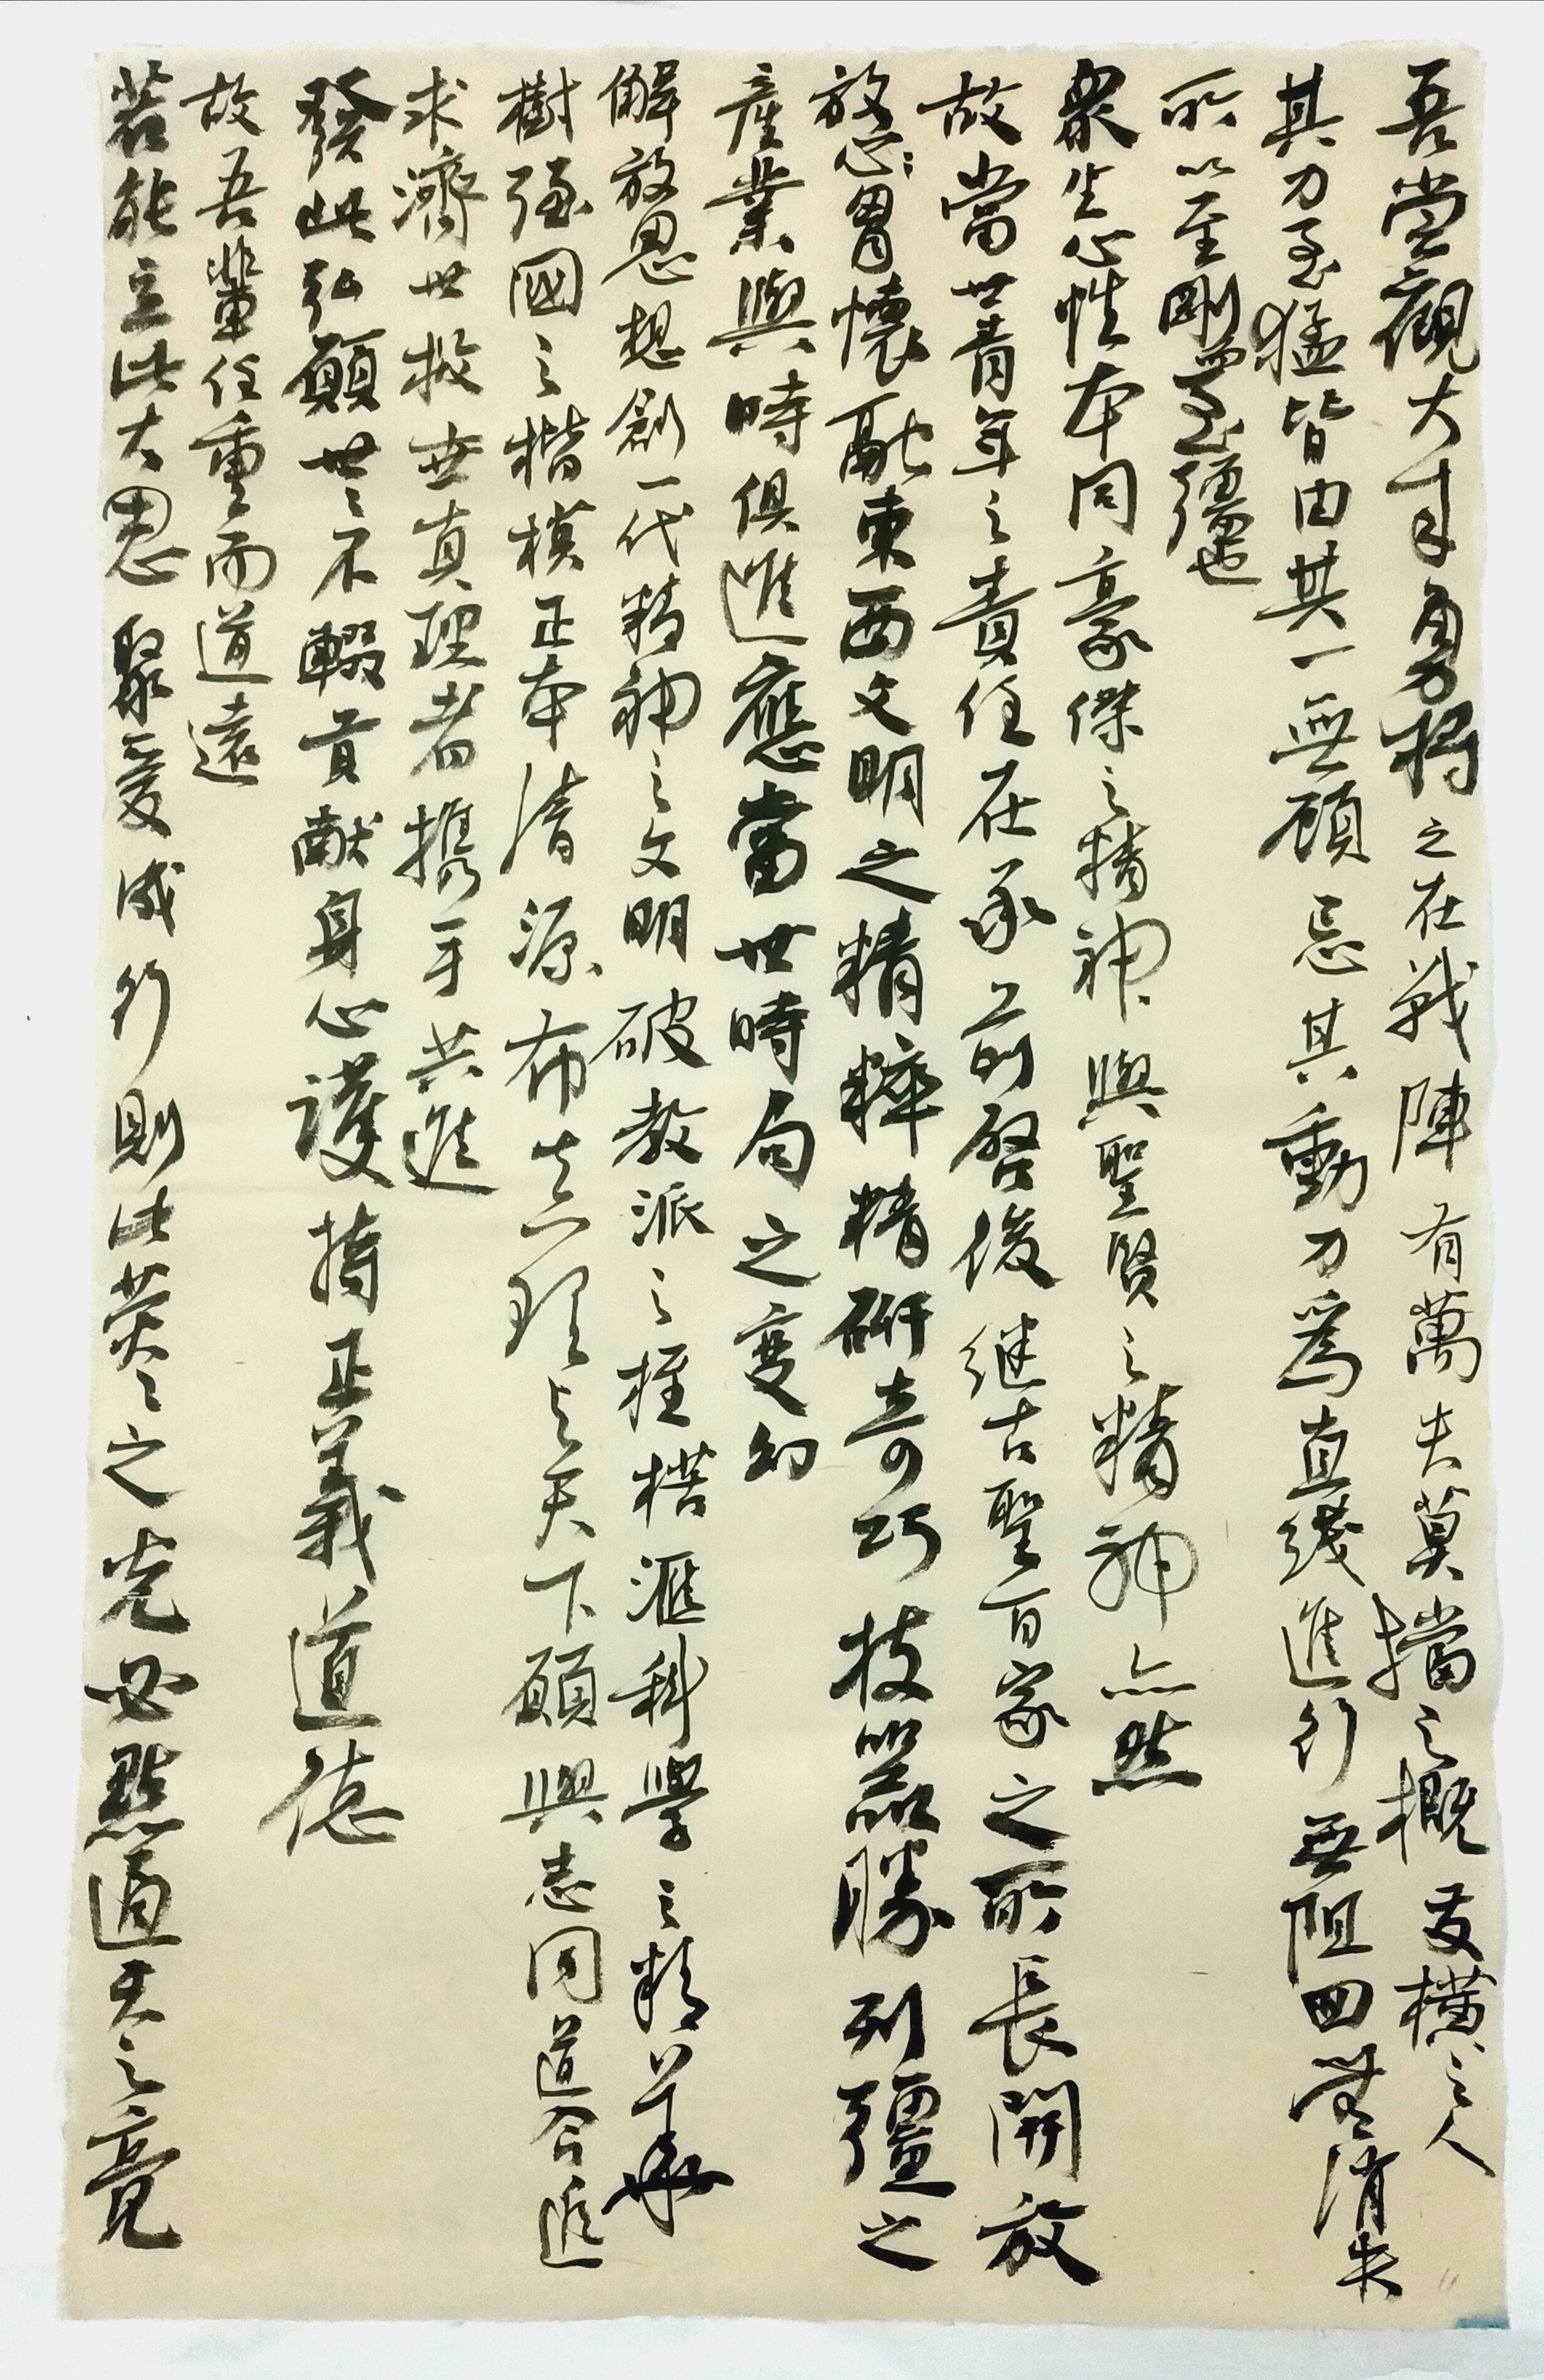 吾嘗觀大才勇将之在戰陣有萬夫莫擋之概橫之人
其力至猛皆由其一無顧忌其動力爲直綫進行無阻四無消失
所以至剛至彊也
衆生心性本同豪傑之精神與聖賢之精神亦然
故當世青年之責任在承前啓後继古聖百家之所長開放
放心胃懷融東西文明之精粹精研奇巧技器勝列彊之
産業與時俱進應當世時局之變幻
解放思想創一代精神之文明破教派之桎梏滙科學之精華
樹强國之楷模正本清源布真理与天下願與志同道合追
求濟世救世真理者携手共進
發此弘願世〻不輟貢献身心護持正義道德
故吾輩任重而道遠
若能立此大思聚爱成行則此熒〻之光必點通天之亮